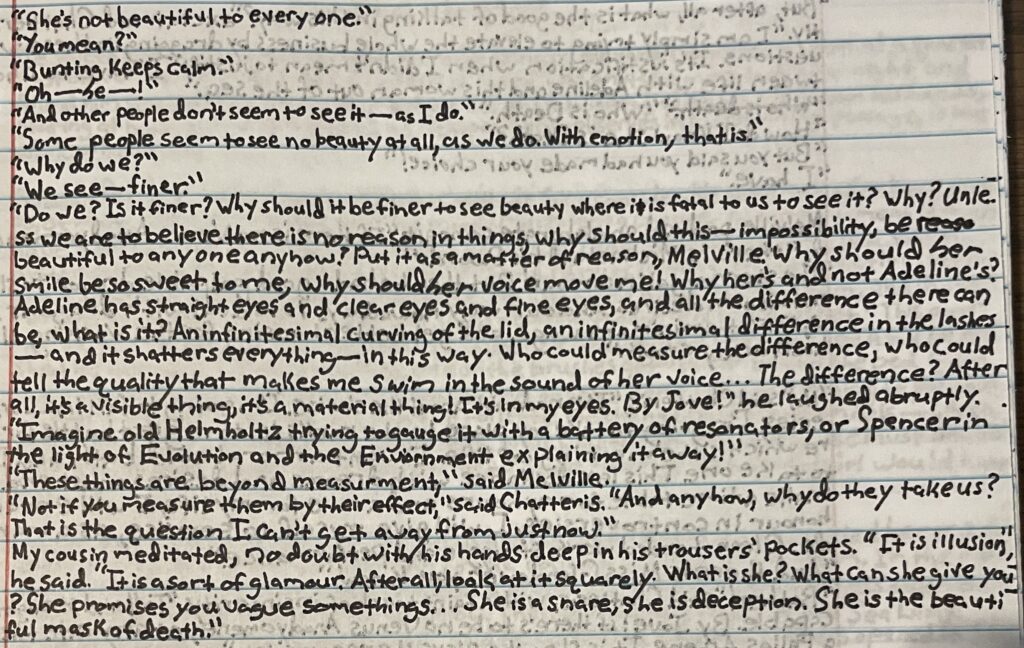 "She's not beautiful to every one."
"You mean?"
"Bunting keeps calm."
"Oh—he—!"
"And other people don't seem to see it—as I do."
"Some people seem to see no beauty at all, as we do. With emotion, that is."
"Why do we?"
"We see—finer."
"Do we? Is it finer? Why should it be finer to see beauty where it is fatal to us to see it? Why? Unle-
ss we are to believe there is no reason in things, why should this—impossibility, be reaso
beautiful to any one anyhow? Put it as a matter of reason, Melville. Why should her
smile be so sweet to me, why should her voice move me! Why her's and not Adeline's?
Adeline has straight eyes and clear eyes and fine eyes, and all the difference there can
be, what is it? An infinitesimal curving of the lid, an infinitesimal difference in the lashes
—and it shatters everything—in this way. Who could measure the difference, who could
tell the quality that makes me swim in the sound of her voice... The difference? After
all, it's a visible thing, it's a material thing! It's in my eyes. By Jove!" he laughed abruptly.
"Imagine old Helmholtz trying to gauge it with a battery of resonators, or Spencer in
the light of Evolution and the Enviornment explaining it away!"
"These things are beyond measurment," said Melville.
"Not if you measure them by their effect," said Chatteris. "And anyhow, why do they take us?
That is the question I can't get away from just now."
My cousin meditated, no doubt with his hands deep in his trousers' pockets. "It is illusion,"
he said. "It is a sort of glamour. After all, look at it squarely. What is she? What can she give you
? She promises you vague somethings.... She is a snare, she is deception. She is the beauti-
ful mask of death."